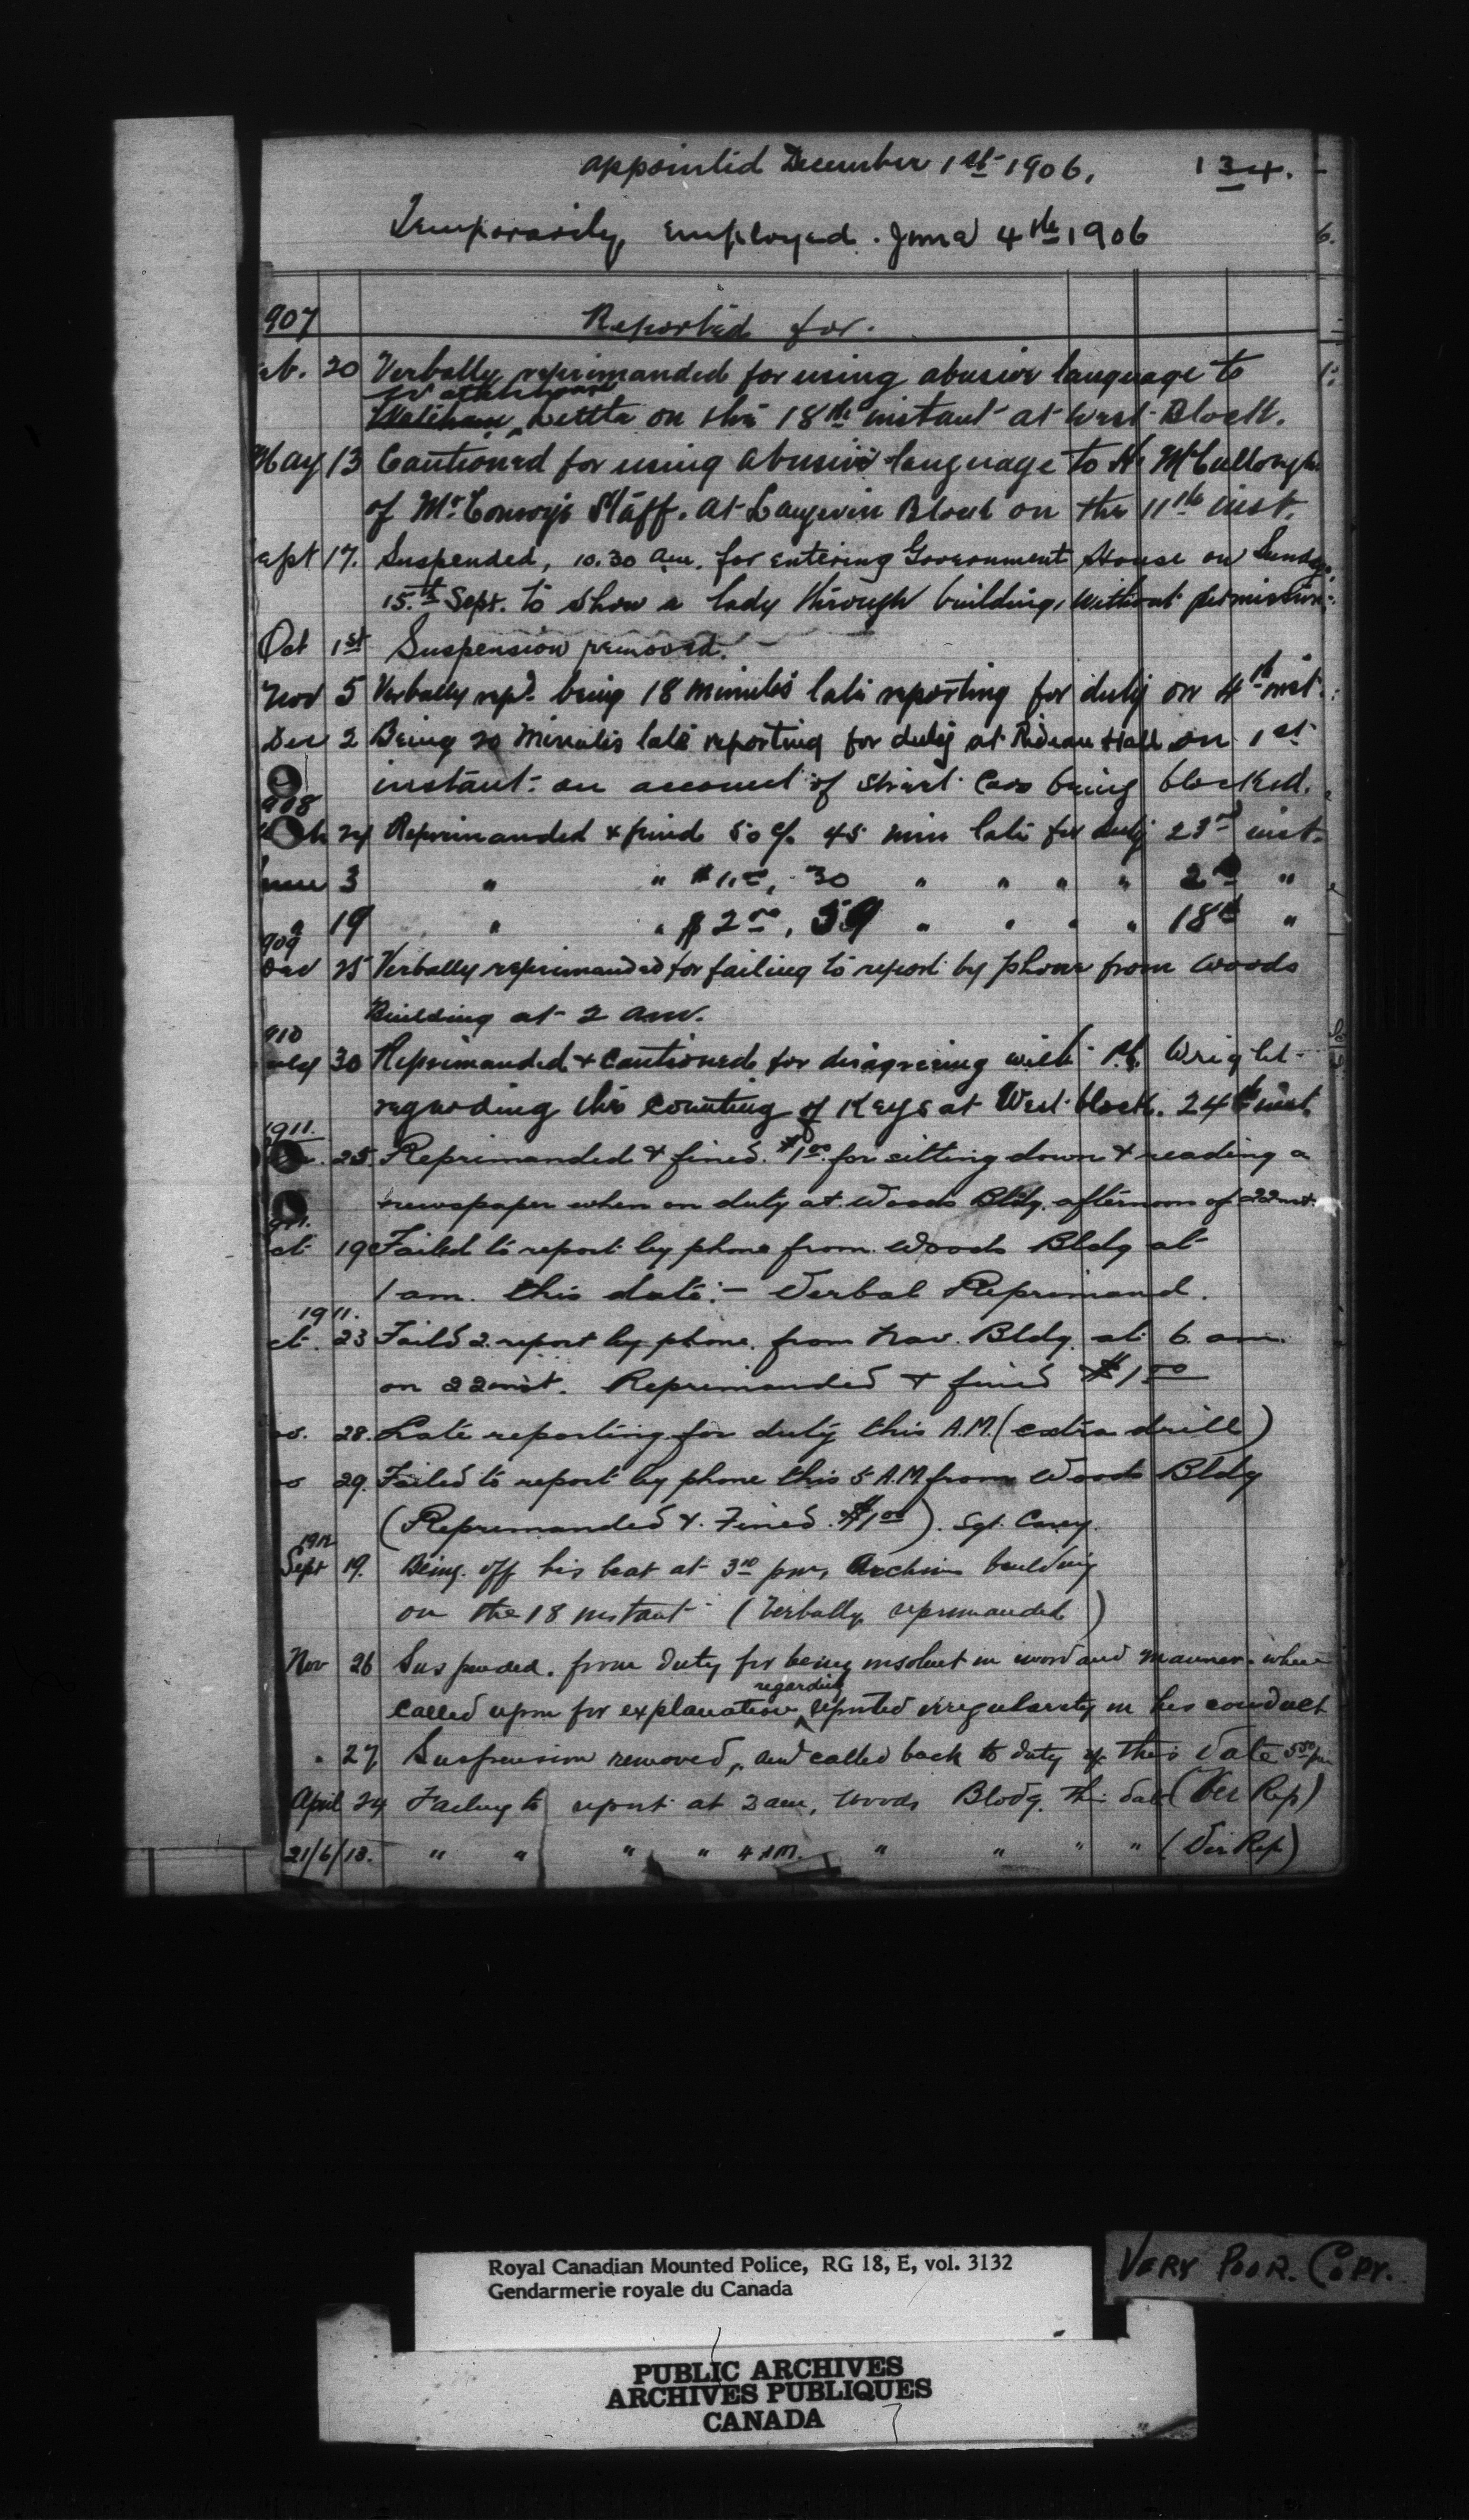 appointed December 1st 1906. 134.
Temporarily employed. June 4th 1906
907 Reported for.
eb. 20 Verbally reprimanded for using abusive language to
on the 18th instant at West Block.
May 13 Cautioned for using abusive language to McCullough
of Mr. Conway's Staff. at Langevin Block on the 11th inst.
ept 17. Suspended, 10.30 am. for entering Government House on Sunday
15th Sept. to show a lady through building, without permission.
Oct 1st Suspension removed.
Nov 5 Verbally repd. being 18 minutes late reporting for duty on 4th inst.
Dec 2 Being 20 minutes late reporting for duty at Rideau Hall on 1st
instant. on account of street cars being blocked.
908
24 Reprimanded & fined 50 c/. 45 min late for duty 23rd inst.
une 3 " " $1.00, 30 " " " " 2nd "
" 19 " " $2.00, 59 " " " " 18th "
909
25 Verbally reprimanded for failing to report by phone from Woods
Building at 2 am.
910
30 Reprimanded & Cautioned for disagreeing with Wright
regarding the counting of Keys at West block. 24th inst.
1911.
25. Reprimanded & fined. $1.00. for sitting down & reading a
newspaper when on duty at Woods Bldg. afternoon of 22 inst.
911.
ct 19 Failed to report by phone from Woods Bldg at
1 am. this date:- Verbal Reprimand.
1911.
ct. 23 Failed 2. report by phone. from Nav. Bldg. at 6 am.
on 22 inst. Reprimanded & fined $1.00
28. Late reporting for duty this A.M. (extra drill)
29. Failed to report by phone this 5 A.M. from Woods Bldg
(Reprimanded & Fined. $1.00). Sgt. Carey.
1912
Sept 19. Being off his beat at 3.10 pm, Archives building
on the 18 instant (Verbally reprimanded)
Nov 26 Suspended. from duty for being insolent in word and manner. when
regarding
called upon for explanation reported irregularity in his conduct
" 27 Suspension removed, and called back to duty this date 5.30 pm
April 24 Failing to report at 2 am, Woods Bldg. this date (Ver Rep)
21/6/13. " " " " 4 A.M. " " " " (Ver Rep)
Royal Canadian Mounted Police, RG 18, E, vol. 3132
Gendarmerie royale du Canada
VERY POOR. COPY.
PUBLIC ARCHIVES
ARCHIVES PUBLIQUES
CANADA